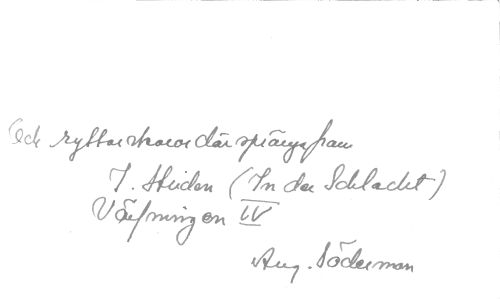 Och ryttarskaror där spränga fram
J. Heiden (In der Schlacht)
Värfningen IV
Aug. Söderman